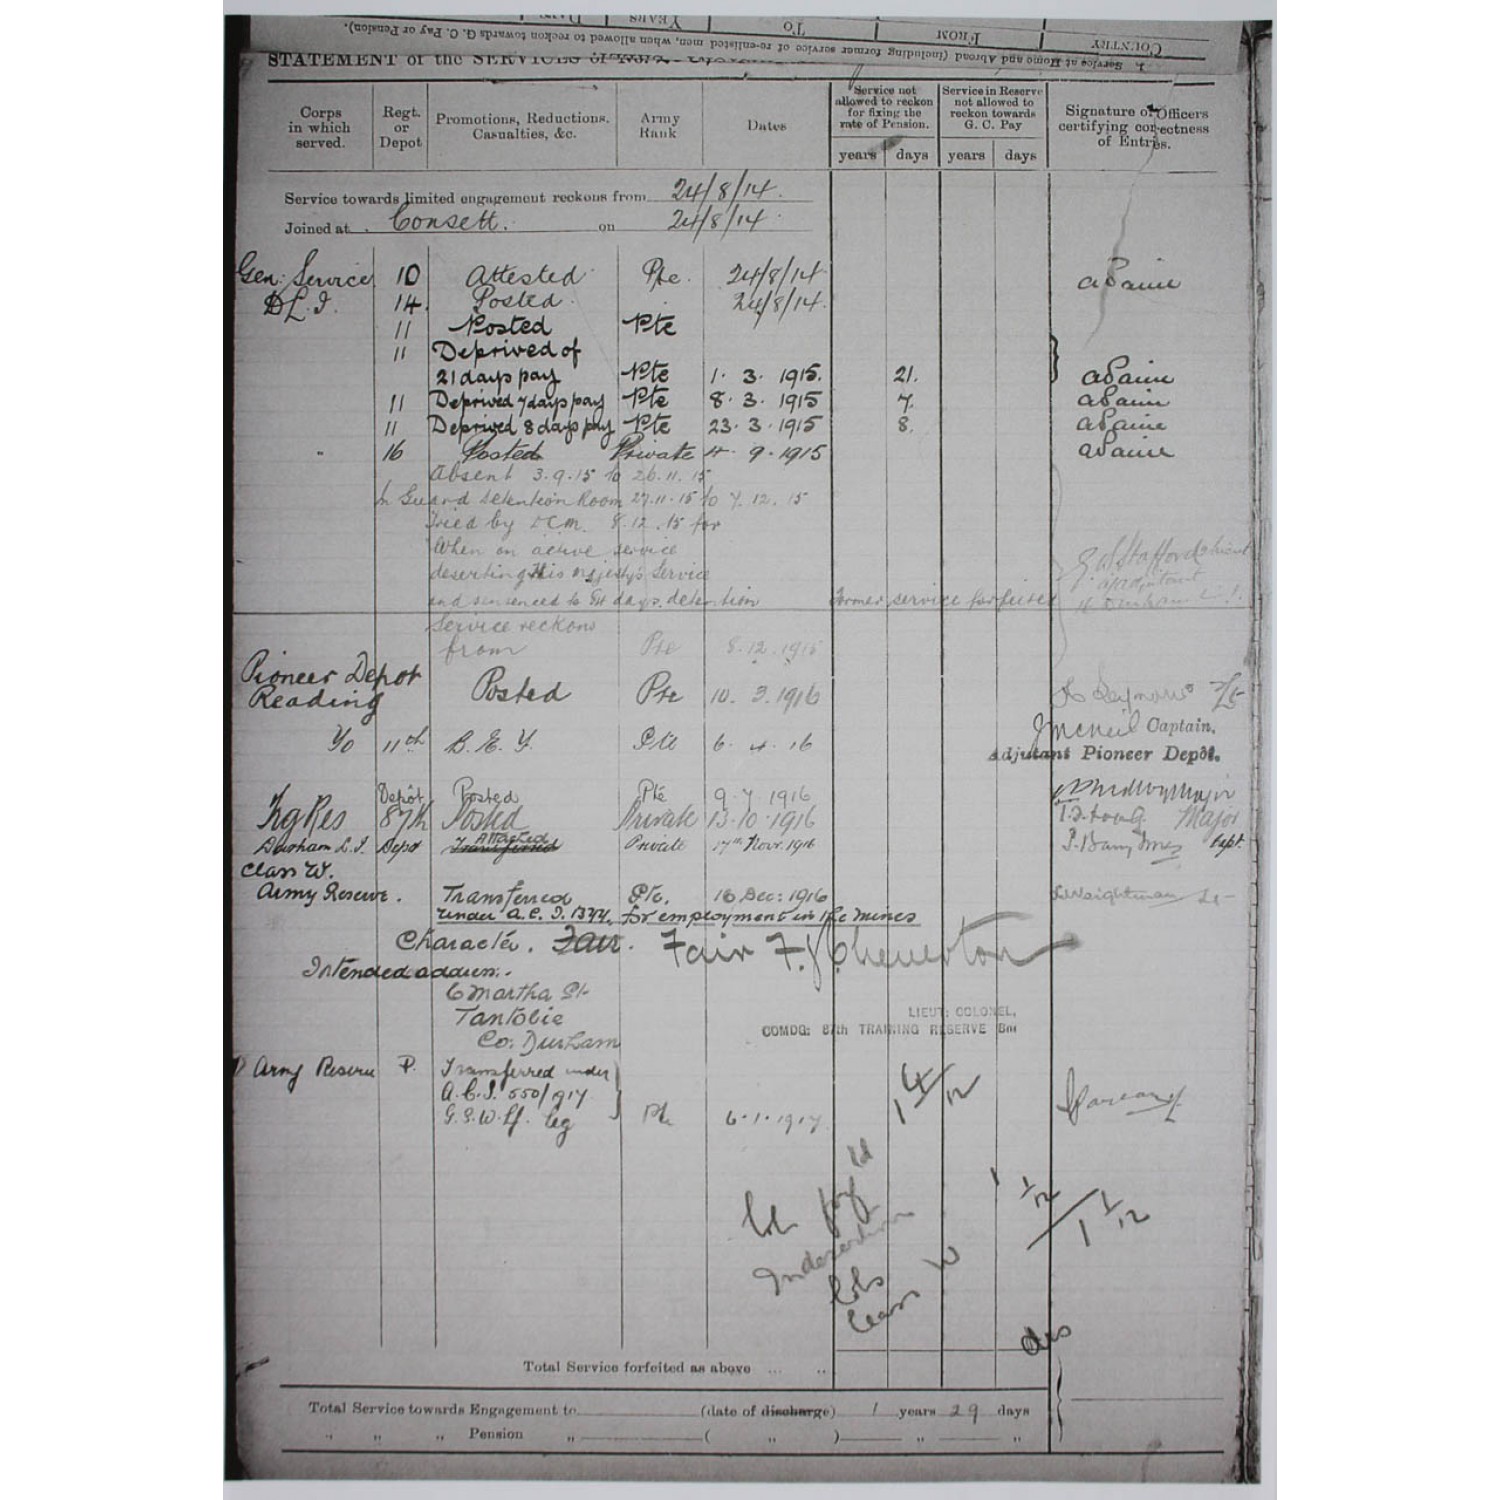 COUNTRY FROM TO YEARS DAYS
1. Service at Home and Abroad (including former service of re-enlisted men, when allowed to reckon towards G. C. Pay or Pension).
STATEMENT of the SERVICES of
Corps in which served. Regt. or Depot Promotions, Reductions, Casualties, &c. Army Rank Dates Service not allowed to reckon for fixing the rate of Pension. Service in Reserve not allowed to reckon towards G. C. Pay Signature of Officers certifying correctness of Entries.
years days years days
Service towards limited engagement reckons from 24/8/14.
Joined at Consett. on 24/8/14.
Gen: Service 10 Attested Pte. 24/8/14 A Paine
D.L.I. 14. Posted. 24/8/14.
11 Posted Pte
11 Deprived of
21 days pay Pte 1. 3. 1915. 21. A Paine
11 Deprived 7 days pay Pte 8. 3. 1915 7. A Paine
11 Deprived 8 days pay Pte 23. 3. 1915 8. A Paine
" 16 Posted Private 4. 9. 1915 A Paine
Absent 3.9.15 to 26.11.15
In Guard detention Room 27.11.15 to 7.12.15
Tried by D.C.M. 8.12.15 for
When on active service
deserting His Majesty's Service Stafford
and sentenced to days detention Former service forfeited Adjutant
Service reckons
from Pte 8.12.1915
Pioneer Depot
Reading Posted Pte 10. 3. 1916
McNeil Captain.
To 11th B.E.F. Pte 6. 4. 16
Adjutant Pioneer Depôt.
Depôt Posted Pte 9.7.1916 Major
Trg Res 87th Posted Private 13.10.1916 Major
Durham L.I. Depot Transferred Attached Private 17th Nov. 1916 Capt.
Class W.
Army Reserve. Transferred Pte. 16 Dec: 1916 Weightman Lt
under A.C.I. 1377. for employment in the mines
Character. Fair. Fair F.J. Cheverton
Intended address.
6 Martha St
Tantobie
Co. Durham
LIEUT: COLONEL,
COMDG: 87th TRAINING RESERVE Bn:
P Army Reserve P. Transferred under
A.C.I. 550/1917
G.S.W. Lf. leg Pte 6.1.1917
1 4/12
pay
In desertion
Class W
1 1/12
1 1/12
Total Service forfeited as above ... ..
Total Service towards Engagement to (date of discharge) 1 years 29 days
" " " Pension " ( " ) " "